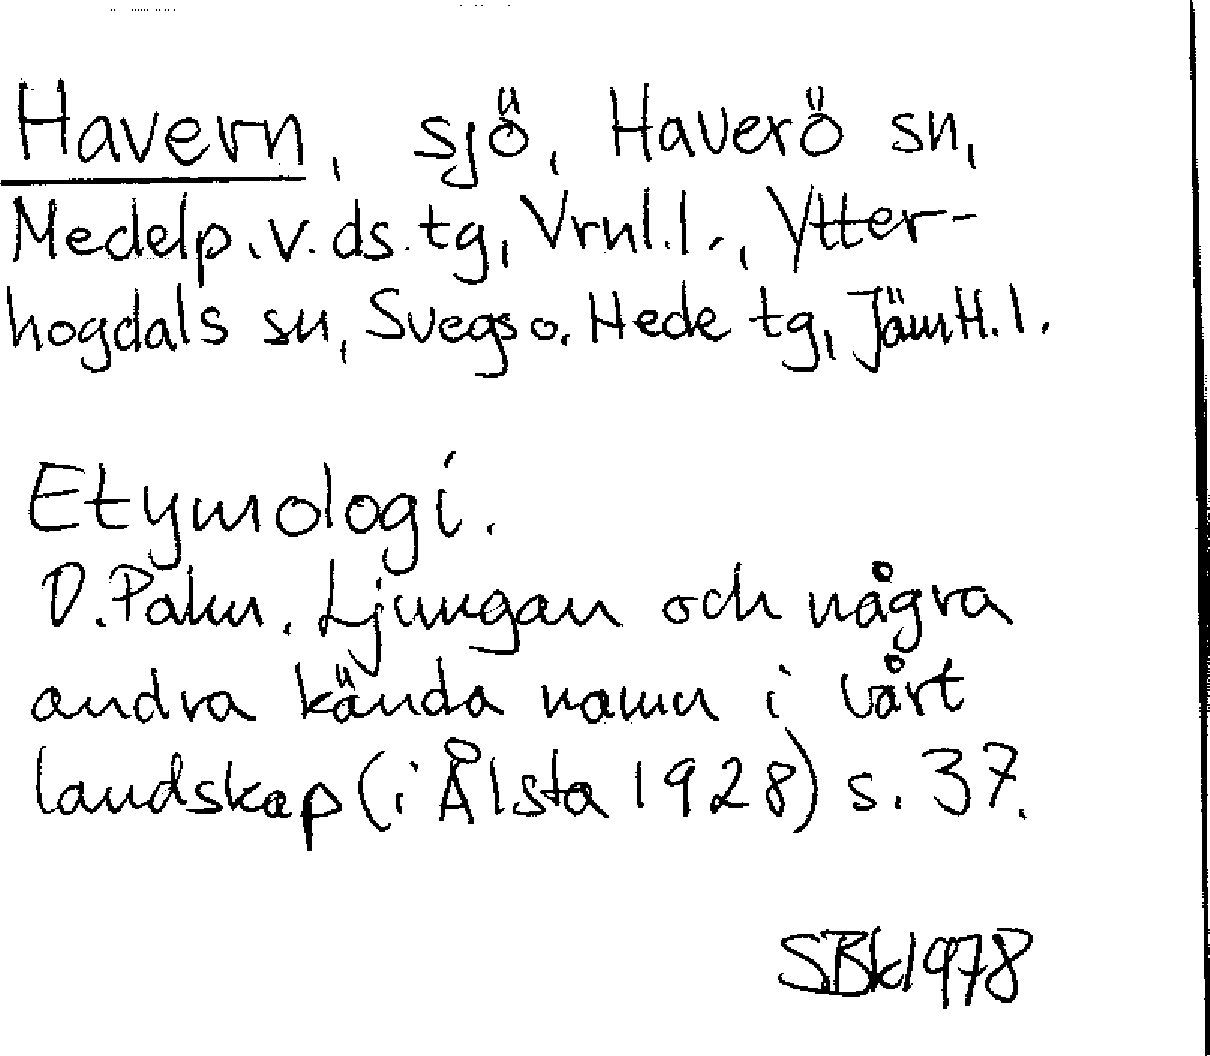 Havern, sjö, Haverö sn,
Medelp.v.ds.tg, Vrnl.l., Ytter-
hogdals sn, Svegs o. Hede tg, JämH.l.
Etymologi.
D. Palm. Ljungan och några
andra kända namn i vårt
landskap (i Ålsta 1928) s. 37.
SBk1978